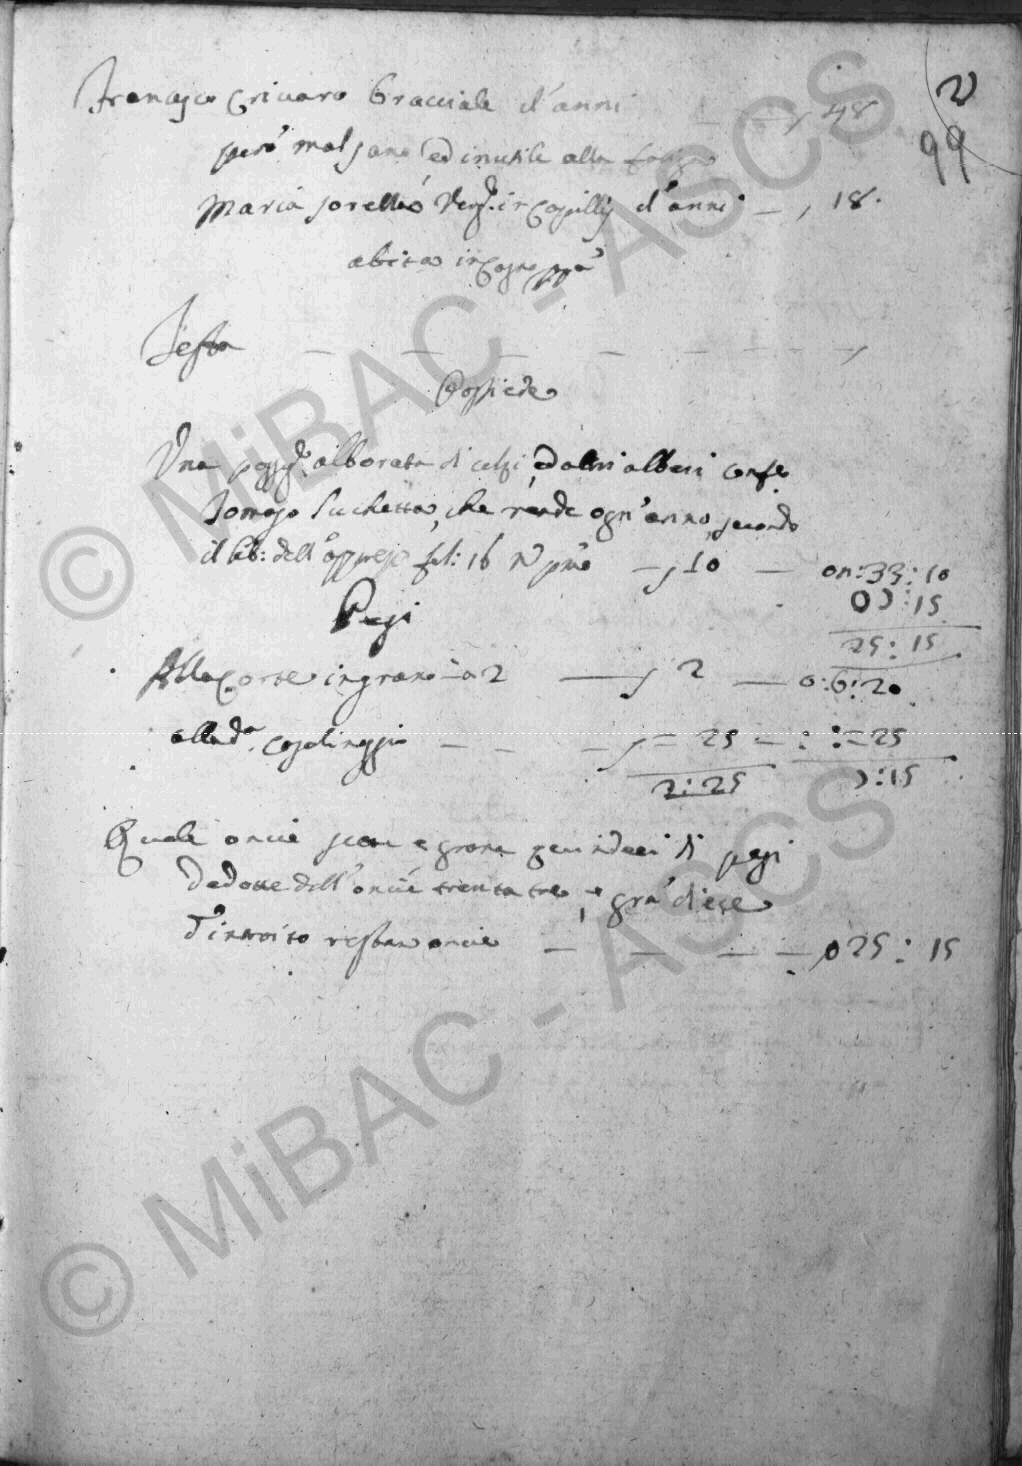 2
99
Francesco Crivaro Bracciale d'anni — —, 48
però mal sano ed inutile alla fatiga
Maria sorella Verg: in Capillis d'anni — , 18.
abita in Casa pp.a
Testa — — — — — — — ,
Possiede
Una poss: alborata di celzi, ed altri alberi conf.
Tomaso Luchetta, che rende ogn'anno, secondo
il lib: dell'apprezo fol: 16 — , 10 — on: 33: 10
:15
25: 15
Pesi
Alla Corte in grano — 2 — , 2 — o: 6: 20
alla d.a Casalinaggio — — — , = 25 — : : = 25
2: 25 :15
Quale oncie e grana quindeci di pesi
dedotte dall'oncie trenta tre, e gra' diece
d'introito restano oncie — — — — , 025: 15
© MiBAC - ASCS
© MiBAC - ASCS